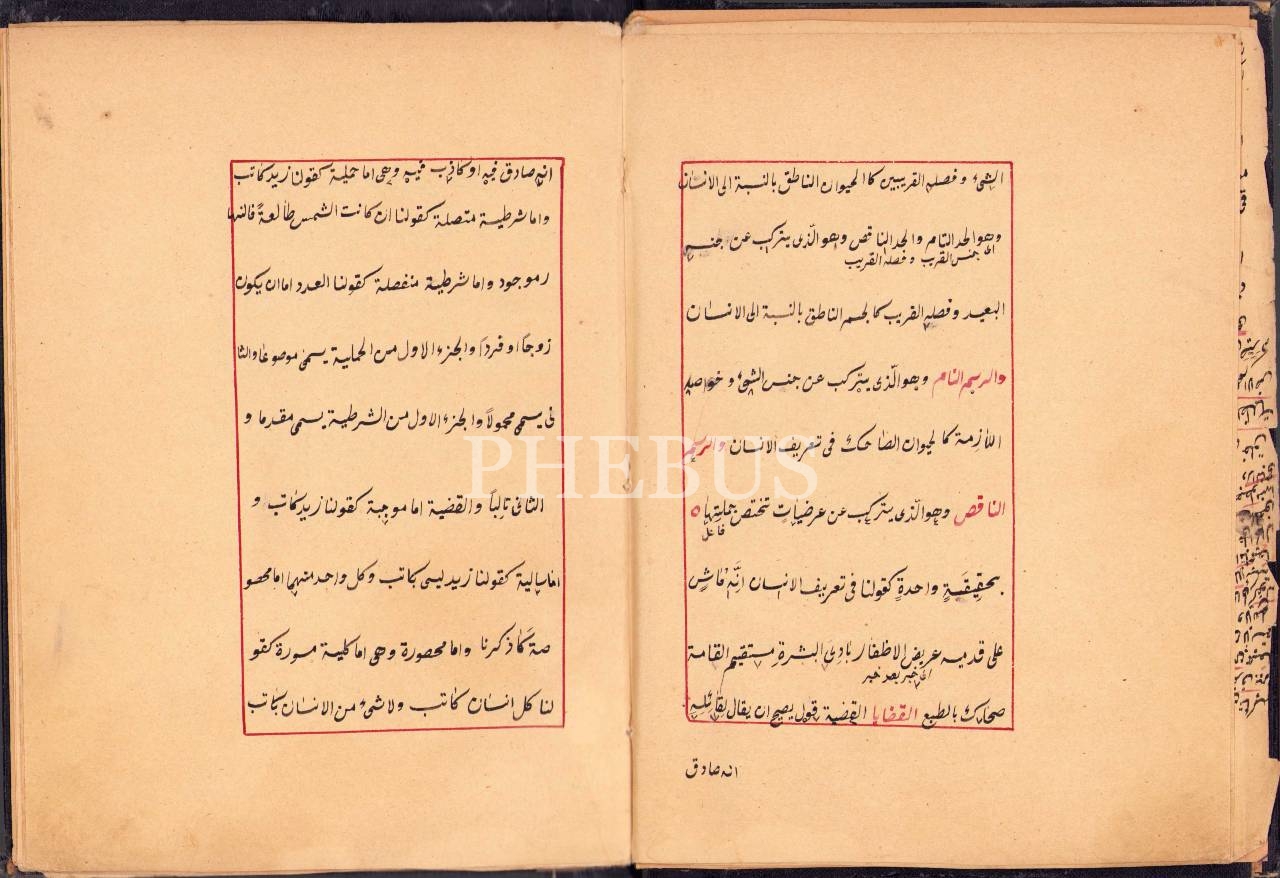 الشئ وفصله القريبين كا الحيوان الناطق بالنسبة الى الانسان
وهو الحد التام والحد الناقص وهو الّذى يتركب عن جنسه
اى جنس القريب وفصله القريب
البعيد وفصله القريب كا لجسم الناطق بالنسبة الى الانسان
والرسم التام وهو الّذى يتركب عن جنس الشئ وخواصه
اللازمة كا لحيوان الضاحك فى تعريف الانسان والرسم
الناقص وهو الّذى يتركب عن عرضيات تختص جملتها
فاعل
بحقيقةٍ واحدةٍ كقولنا فى تعريف الانسان انّه ماش
على قدميه عريض الاظفار بادى البشرة مستقيم القامة
خبر بعد خبر
ضحاك بالطبع القضايا القضية قول يصح ان يقال لقائله
انه صادق
انه صادق فيه او كاذب فيه وهى اما حملية كقولنا زيد كاتب
واما شرطية متصلة كقولنا ان كانت الشمس طالعةً فالنها
رموجود واما شرطية منفصلة كقولنا العدد اما ان يكون
زوجاً او فرداً والجزء الاول من الحملية يسمى موضوعا والثا
نى يسمى محمولاً والجزء الاول من الشرطية يسمى مقدما و
الثانى تالياً والقضية اما موجبة كقولنا زيد كاتب و
اما سالبة كقولنا زيد ليس بكاتب وكل واحد منهما اما مخصو
صة كما ذكرنا واما محصورة وهى اما كلية مسورة كقو
لنا كل انسان كاتب ولا شئ من الانسان بكاتب
PHEBUS